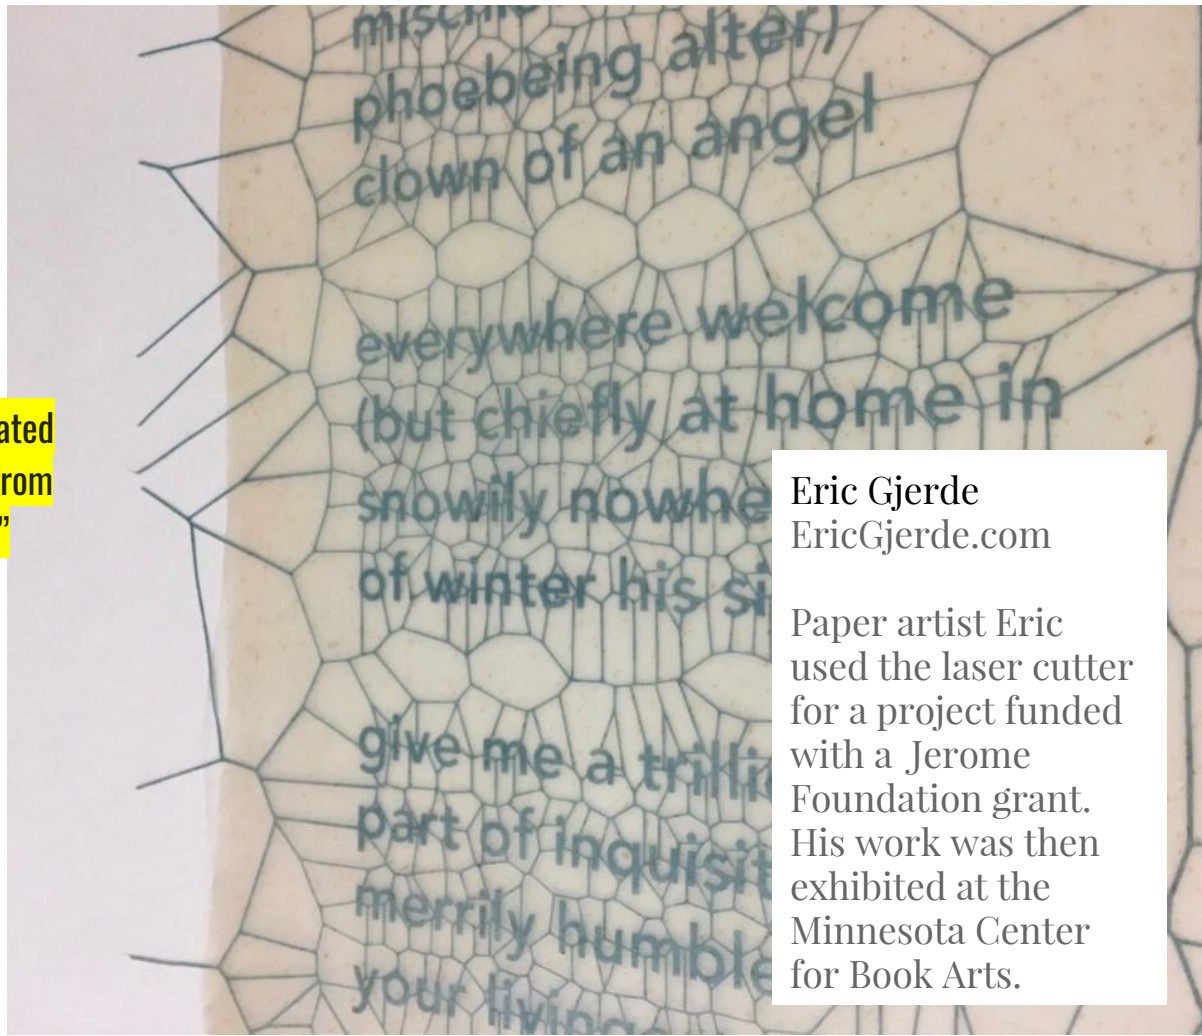 phoebeing alter)
clown of an angel
everywhere welcome
(but chiefly at home in
snowily nowhe
of winter his si
give me a trilli
part of inquisit
merrily humble
your living
ated
from
”
Eric Gjerde
EricGjerde.com
Paper artist Eric
used the laser cutter
for a project funded
with a Jerome
Foundation grant.
His work was then
exhibited at the
Minnesota Center
for Book Arts.